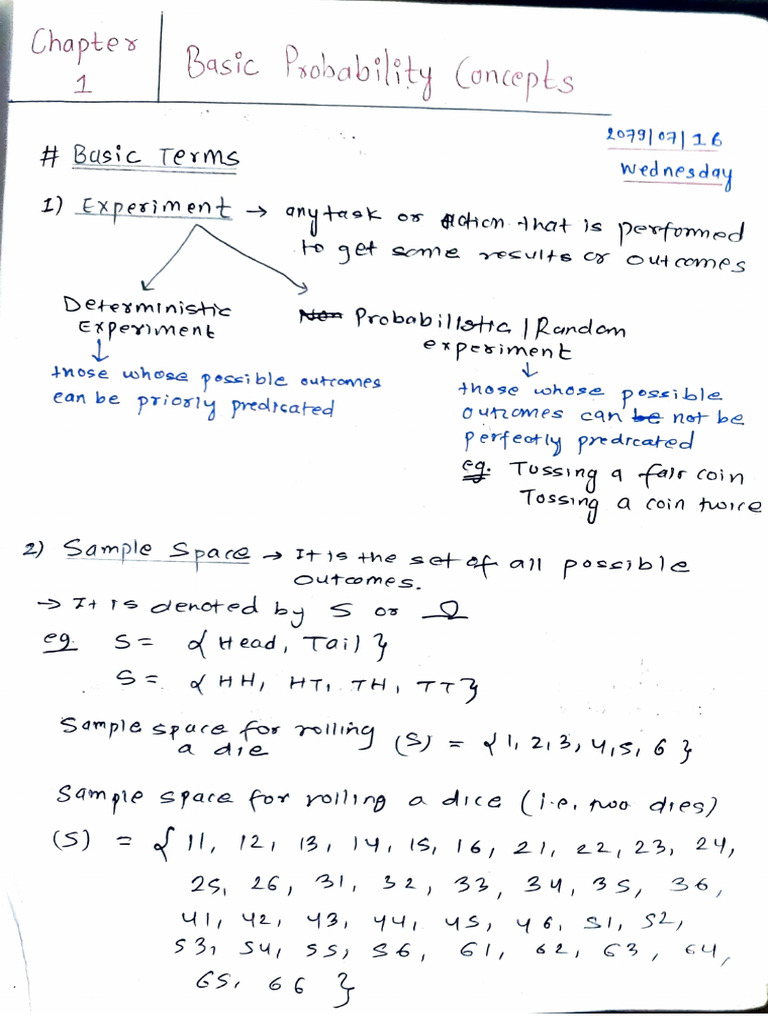 Chapter 1
Basic Probability Concepts
2079/07/16
Wednesday
# Basic Terms
1) Experiment → any task or action that is performed
to get some results or outcomes
Deterministic
Experiment
↓
those whose possible outcomes
can be priorly predicated
Non Probabilistic / Random
experiment
↓
those whose possible
outcomes can be not be
perfectly predicated
eg. Tossing a fair coin
Tossing a coin twice
2) Sample Space → It is the set of all possible
outcomes.
→ It is denoted by S or Ω
eg. S = { Head, Tail }
S = { HH, HT, TH, TT }
Sample space for rolling
a die (S) = { 1, 2, 3, 4, 5, 6 }
Sample space for rolling a dice (i.e. two dies)
(S) = { 11, 12, 13, 14, 15, 16, 21, 22, 23, 24,
25, 26, 31, 32, 33, 34, 35, 36,
41, 42, 43, 44, 45, 46, 51, 52,
53, 54, 55, 56, 61, 62, 63, 64,
65, 66 }